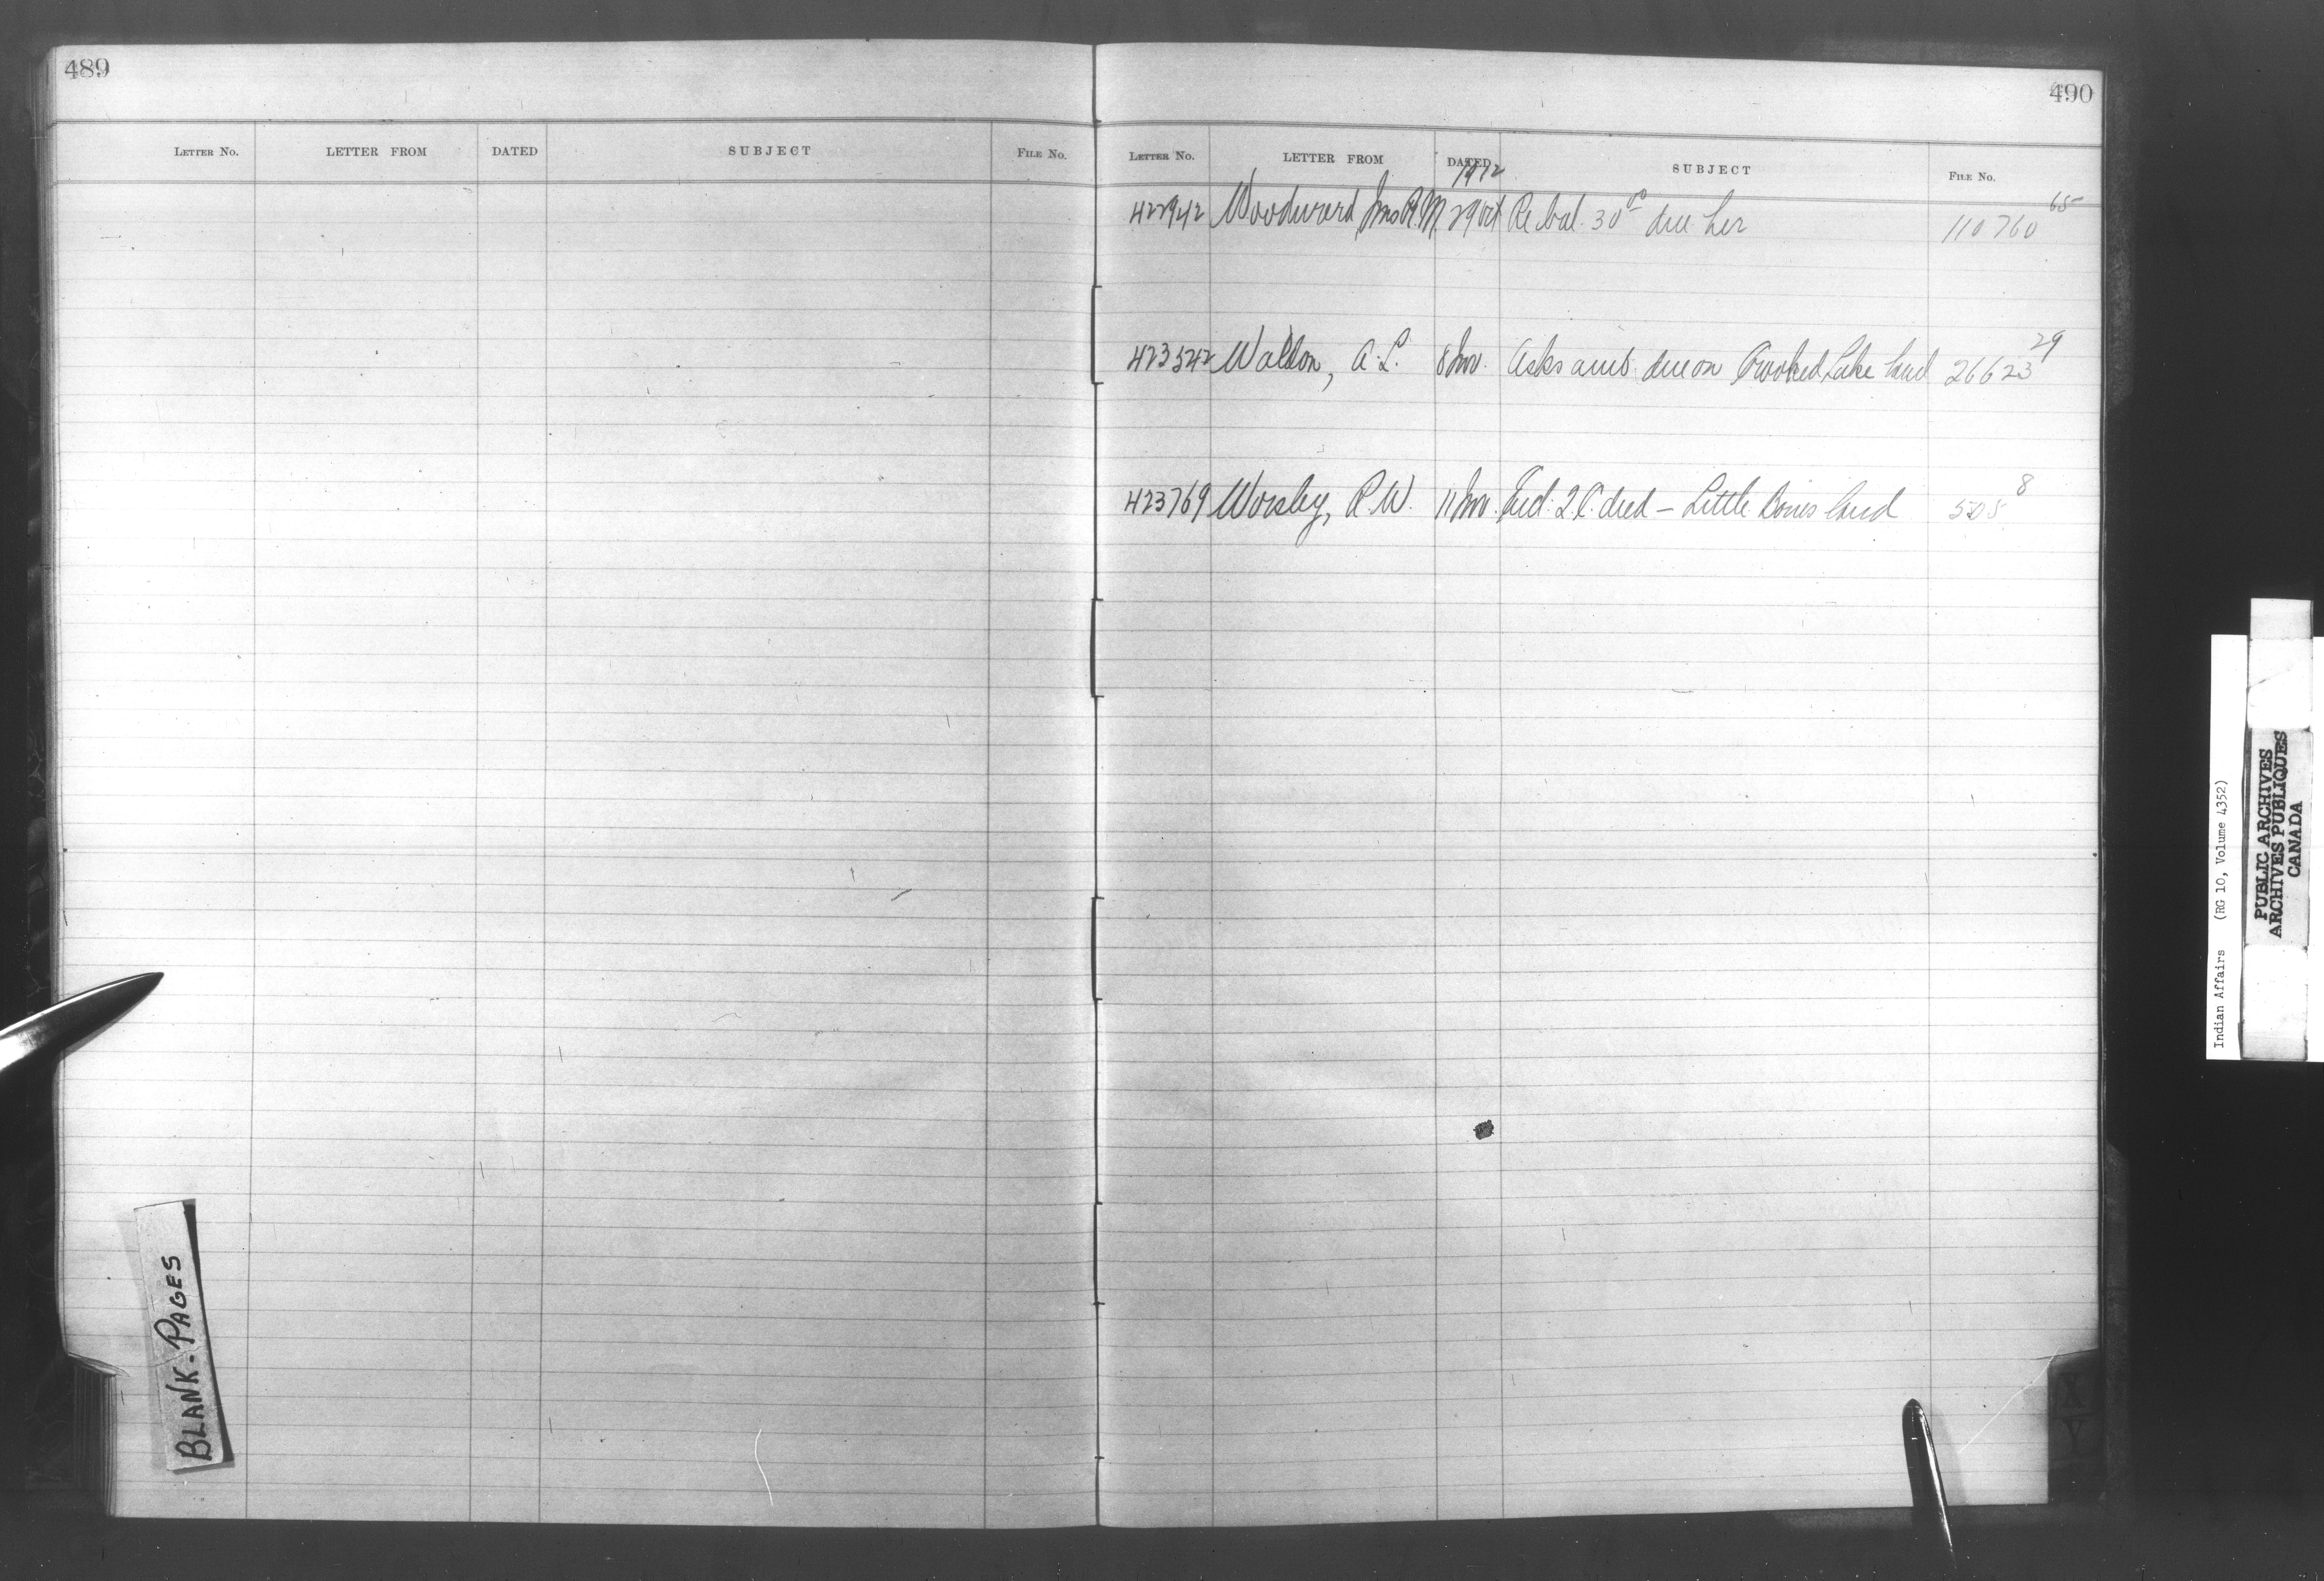 489
LETTER NO. LETTER FROM DATED SUBJECT FILE NO.
490
LETTER NO. LETTER FROM DATED SUBJECT FILE NO.
1912
422942 Woodward, Mrs R. M. 29 Oct Re bal. 30 00 due her 110760 65
423542 Walton, A. L. 8 Nov. Asks amt. due on Crooked Lake land 26623 29
423769 Worsley, R. W. 11 Nov. Q.C. deed — Little Bones land 505 8
BLANK-PAGES
Indian Affairs (RG 10, Volume 4352)
PUBLIC ARCHIVES
ARCHIVES PUBLIQUES
CANADA
X
Y